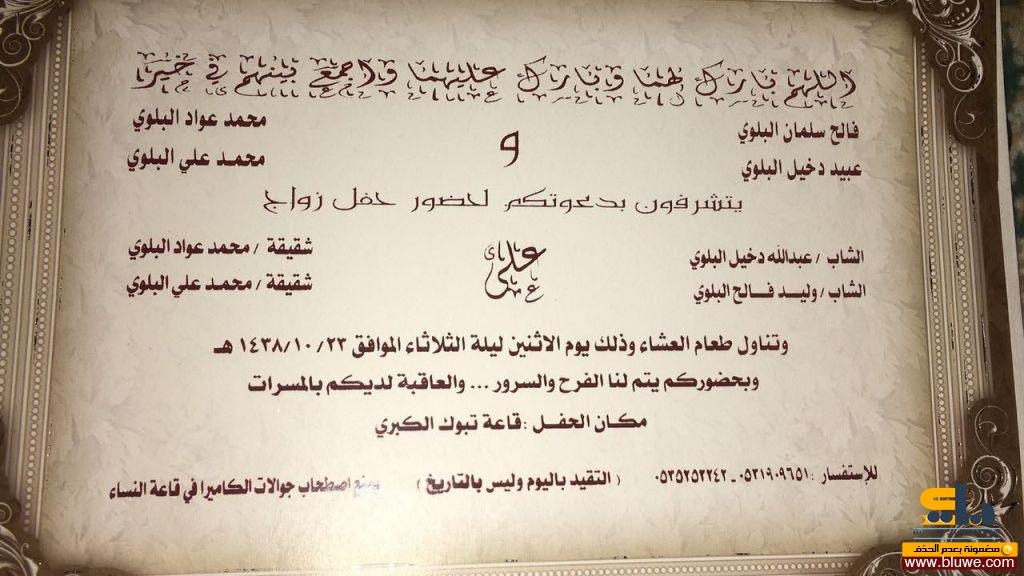 اللهم بارك لهما وبارك عليهما واجمع بينهم في خير
فالح سلمان البلوي و محمد عواد البلوي
عبيد دخيل البلوي محمد علي البلوي
يتشرفون بدعوتكم لحضور حفل زواج
الشاب / عبدالله دخيل البلوي على شقيقة / محمد عواد البلوي
الشاب / وليد فالح البلوي شقيقة / محمد علي البلوي
وتناول طعام العشاء وذلك يوم الاثنين ليلة الثلاثاء الموافق ١٤٣٨/١٠/٢٣ هـ
وبحضوركم يتم لنا الفرح والسرور ... والعاقبة لديكم بالمسرات
مكان الحفل : قاعة تبوك الكبري
للإستفسار : ٠٥٣١٩٠٩٦٥١ - ٠٥٣٥٢٥٣٢٤٢ ( التقيد باليوم وليس بالتاريخ ) يمنع اصطحاب جوالات الكاميرا في قاعة النساء
بلوي
مضمونة بعدم الحذف
www.bluwe.com